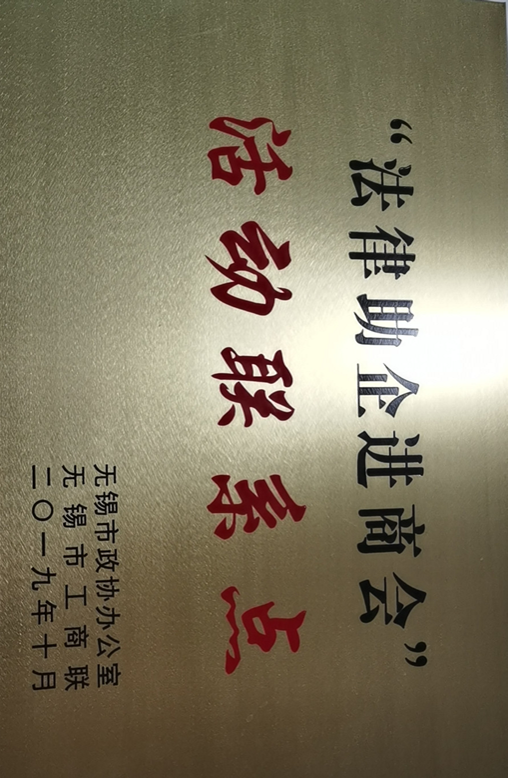 “法律助企进商会”
活动联系点
无锡市政协办公室
无锡市工商联
二〇一九年十月